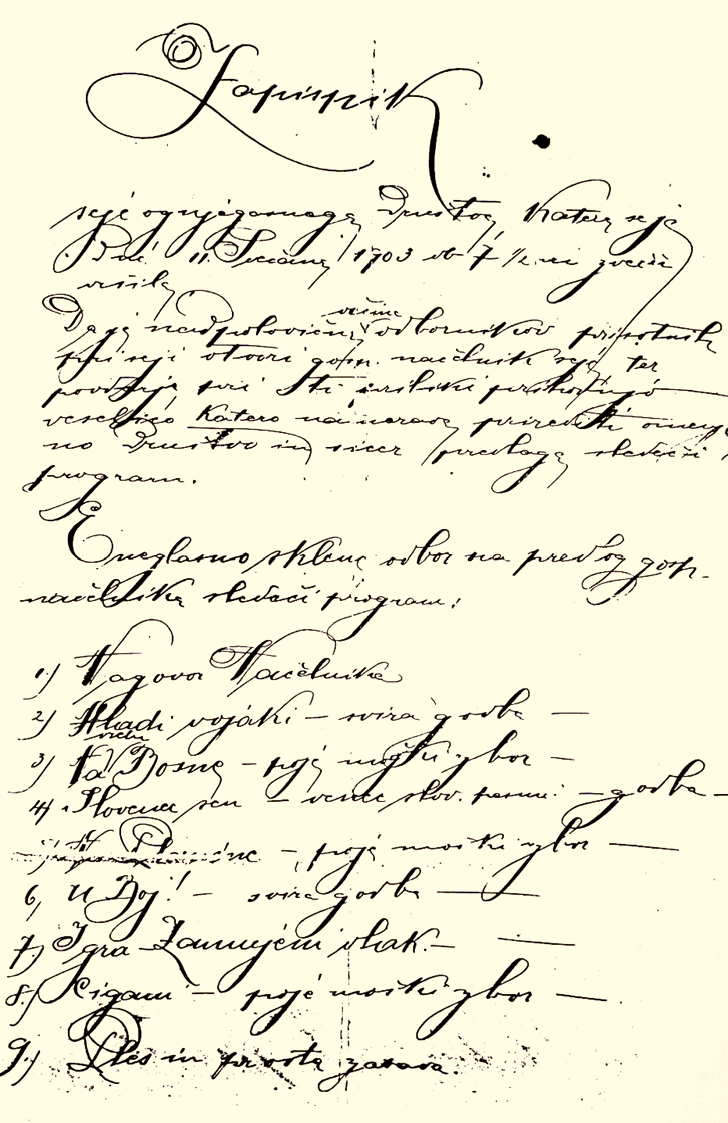 Zapisnik
seje ognjegasnega Društva, katera se je
Dné 11. Sušca 1903 ob 7 1/2 uri zvečer
vršila
večina
Da je nadpolovična odbornikov prisotnih
pri seji otvori gosp. načelnik sejo ter
pri
veselico katero namerava prirediti omenje
no Društvo in sicer predlaga sledeči
program.
Eneglasno sklene odbor na predlog gosp.
načelnika sledeči program:
1.) Nagovor Načelnika
2.) Mladi vojáki – svira godba —
3.) Na Bosne – poje moški zbor —
4.) Slovenca sen – venec slov. pesmi – godba –
– poje moški zbor —
6, U Boj! – svira godba —
7.) Igra Zamujeni vlak. – —
8.) Cigani – poje moški zbor —
9.) Ples in prosta zabava.